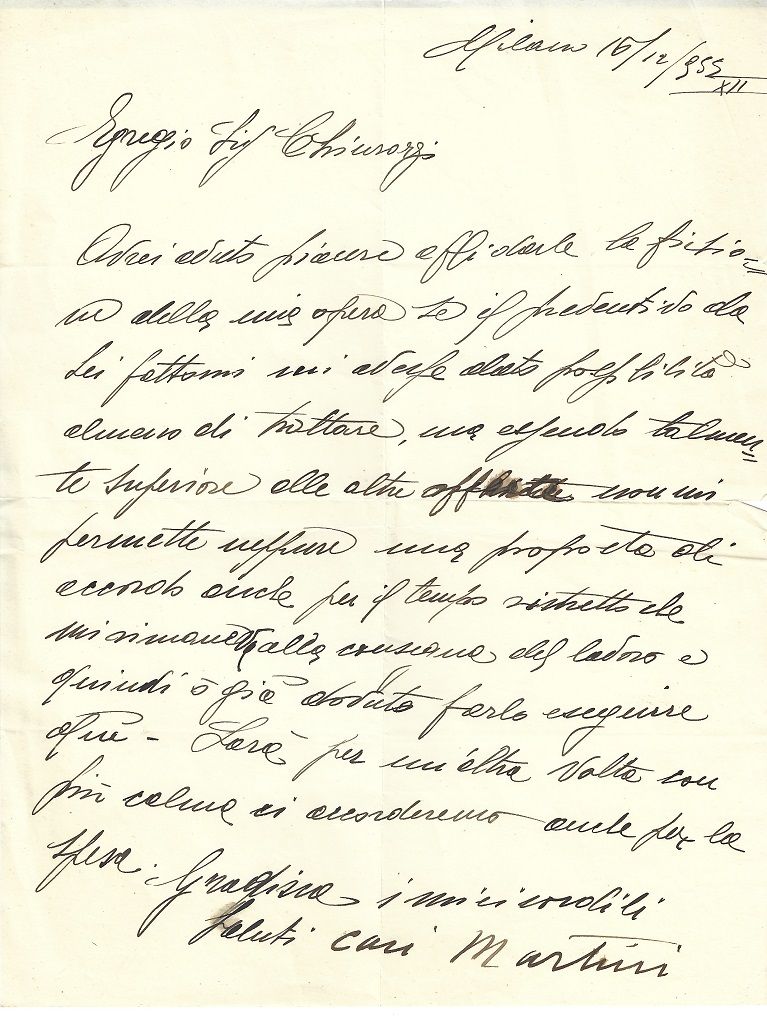 Milano 15/12/933
XII
Egregio Sig Chiurazzi
Avrei avuto piacere affidarle la fusio=
ne della mia opera se il preventivo da
Lei fattomi mi avesse dato possibilità
almeno di trattare, ma essendo talmen=
te superiore alle altre non mi
permette neppure una proposta di
accordo anche per il tempo ristretto che
mi rimane alla consegna del lavoro e
quindi ò già dovuto farlo eseguire
quì - Sarà per un'altra volta con
più calma ci accorderemo anche per la
spesa. Gradisca i miei cordili
saluti cari Martini